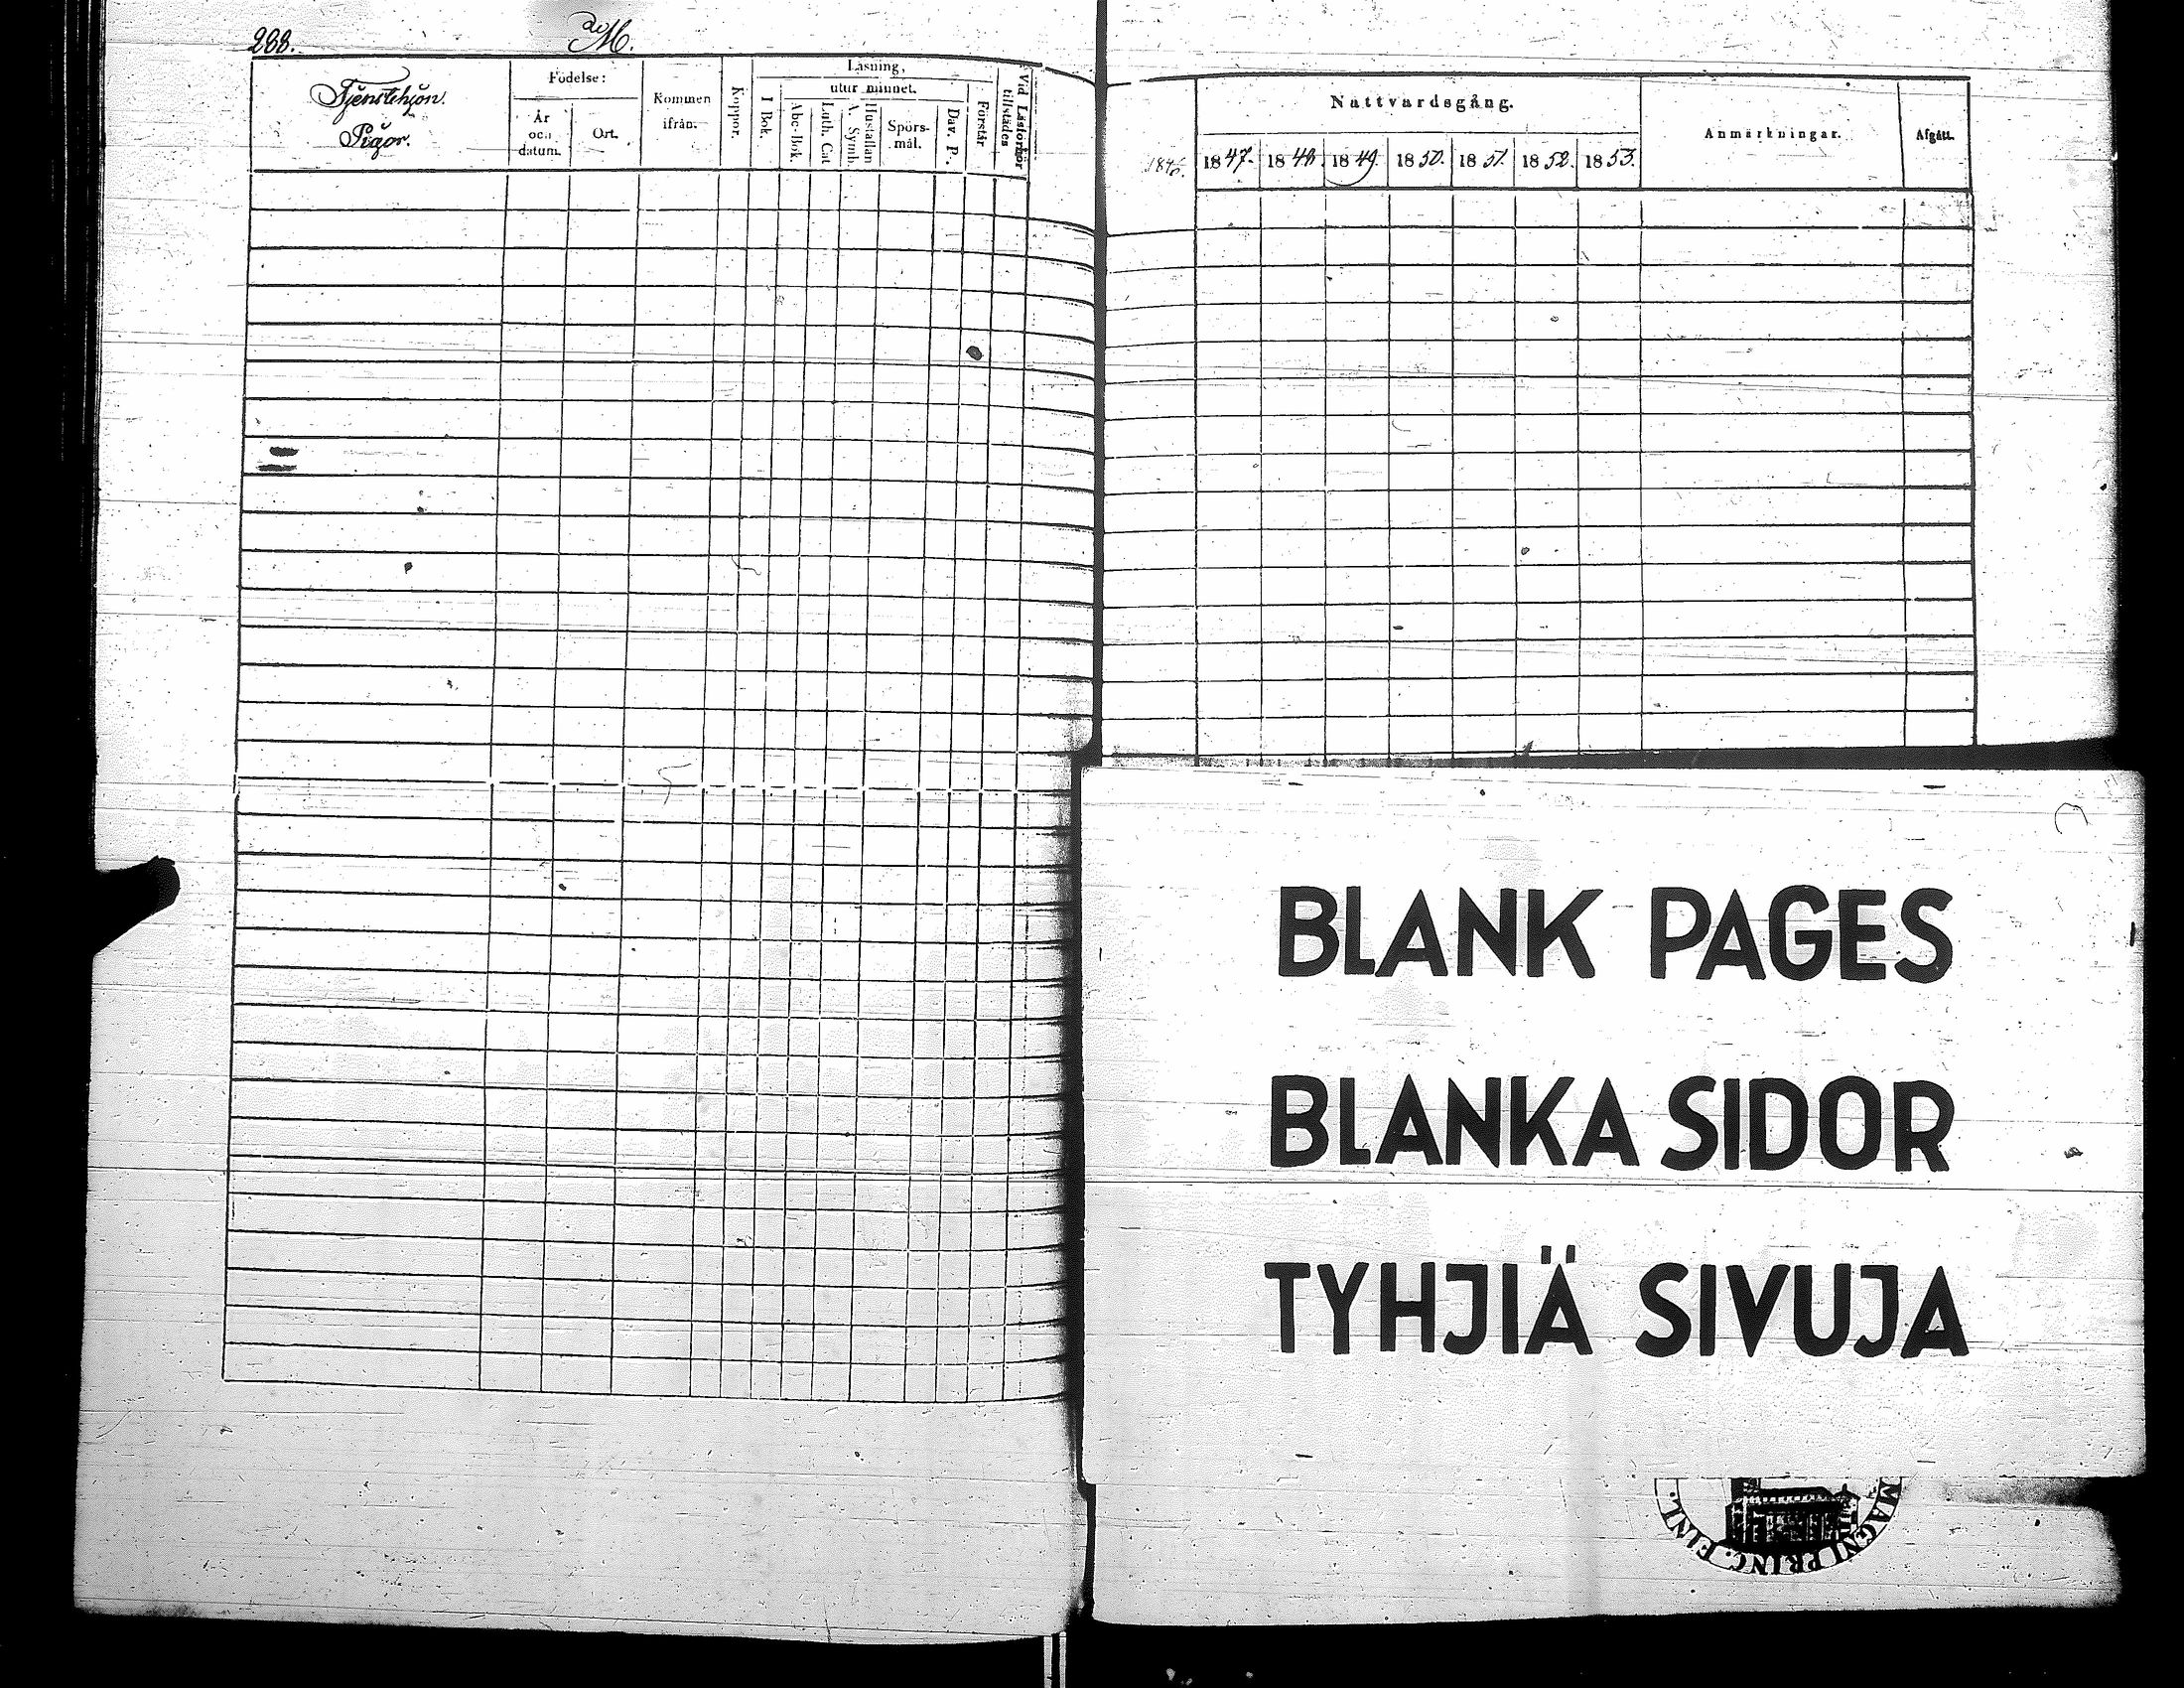 288.
M.
Tjenstehjon.
Pigor.
Födelse:
År
och
datum.
Ort.
Kommen
ifrån.
Koppor.
Läsning,
utur minnet.
I Bok.
Abc-Bok.
Luth. Cat
Hustaflan
A. Symb.
Spörs-
mål.
Dav. P.
Förstår
Vid Läsförhör
tillstädes
Nattvardsgång.
1846.
1847. 1848. 1849. 1850. 1851. 1852. 1853.
Anmärkningar.
Afgått.
BLANK PAGES
BLANKA SIDOR
TYHJIÄ SIVUJA
MAGNI PRINC. FINL.